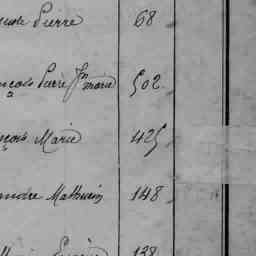 Pierre 68
Pierre Jn marie 502
nçois Marie 425
andre Mathurin 148
138